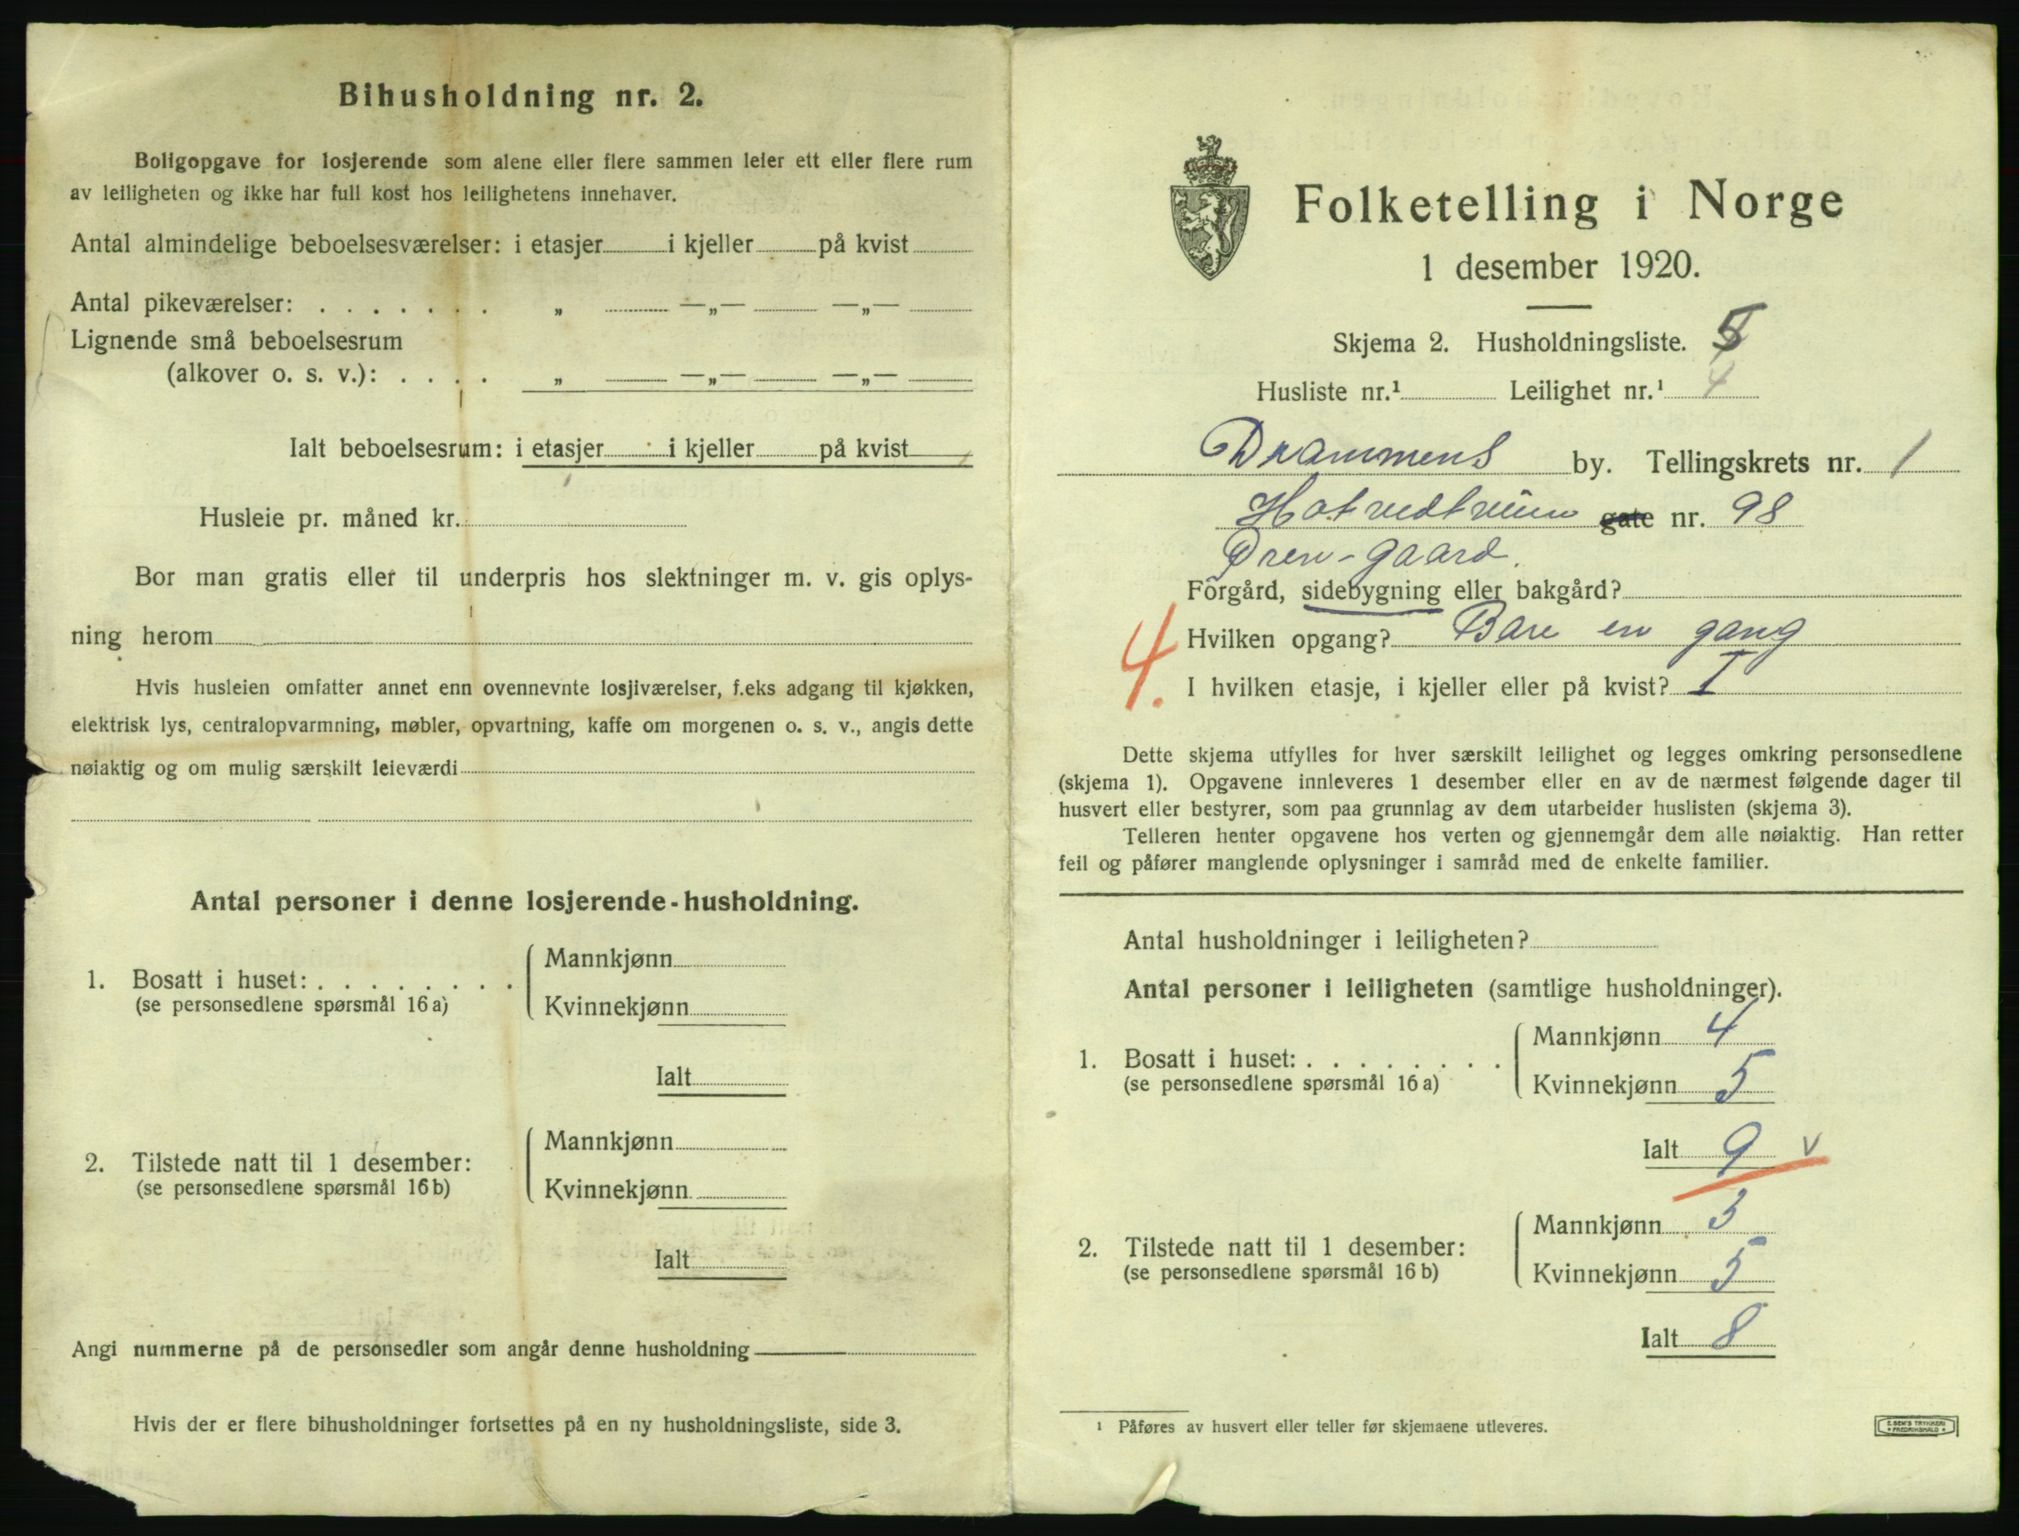 Bihusholdning nr. 2.
Boligopgave for losjerende som alene eller flere sammen leier ett eller flere rum
av leiligheten og ikke har full kost hos leilighetens innehaver.
Antal almindelige beboelsesværelser: i etasjer i kjeller på kvist
Antal pikeværelser: . . . . . . . „ —„— —„—
Lignende små beboelsesrum
(alkover o. s. v.): . . . . „ —„— —„—
Ialt beboelsesrum: i etasjer i kjeller på kvist
Husleie pr. måned kr.
Bor man gratis eller til underpris hos slektninger m. v. gis oplys-
ning herom
Hvis husleien omfatter annet enn ovennevnte losjiværelser, f.eks adgang til kjøkken,
elektrisk lys, centralopvarmning, møbler, opvartning, kaffe om morgenen o. s. v., angis dette
nøiaktig og om mulig særskilt leieværdi
Antal personer i denne losjerende-husholdning.
1. Bosatt i huset: . . . . . . . .
(se personsedlene spørsmål 16 a)
Mannkjønn
Kvinnekjønn
Ialt
2. Tilstede natt til 1 desember:
(se personsedlene spørsmål 16 b)
Mannkjønn
Kvinnekjønn
Ialt
Angi nummerne på de personsedler som angår denne husholdning
Hvis der er flere bihusholdninger fortsettes på en ny husholdningsliste, side 3.
Folketelling i Norge
1 desember 1920.
Skjema 2. Husholdningsliste. 5
Husliste nr.¹ Leilighet nr.¹ 4
Drammens by. Tellingskrets nr. 1
Hotvedtveien gate nr. 98
Øren-gaard.
Forgård, sidebygning eller bakgård?
4. Hvilken opgang? Bare en gang
I hvilken etasje, i kjeller eller på kvist? I
Dette skjema utfylles for hver særskilt leilighet og legges omkring personsedlene
(skjema 1). Opgavene innleveres 1 desember eller en av de nærmest følgende dager til
husvert eller bestyrer, som paa grunnlag av dem utarbeider huslisten (skjema 3).
Telleren henter opgavene hos verten og gjennemgår dem alle nøiaktig. Han retter
feil og påfører manglende oplysninger i samråd med de enkelte familier.
Antal husholdninger i leiligheten?
Antal personer i leiligheten (samtlige husholdninger).
1. Bosatt i huset: . . . . . . . .
(se personsedlene spørsmål 16 a)
Mannkjønn 4
Kvinnekjønn 5
Ialt 9 v
2. Tilstede natt til 1 desember:
(se personsedlene spørsmål 16 b)
Mannkjønn 3
Kvinnekjønn 5
Ialt 8
¹ Påføres av husvert eller teller før skjemaene utleveres.
E. SEM'S TRYKKERI
FREDRIKSHALD